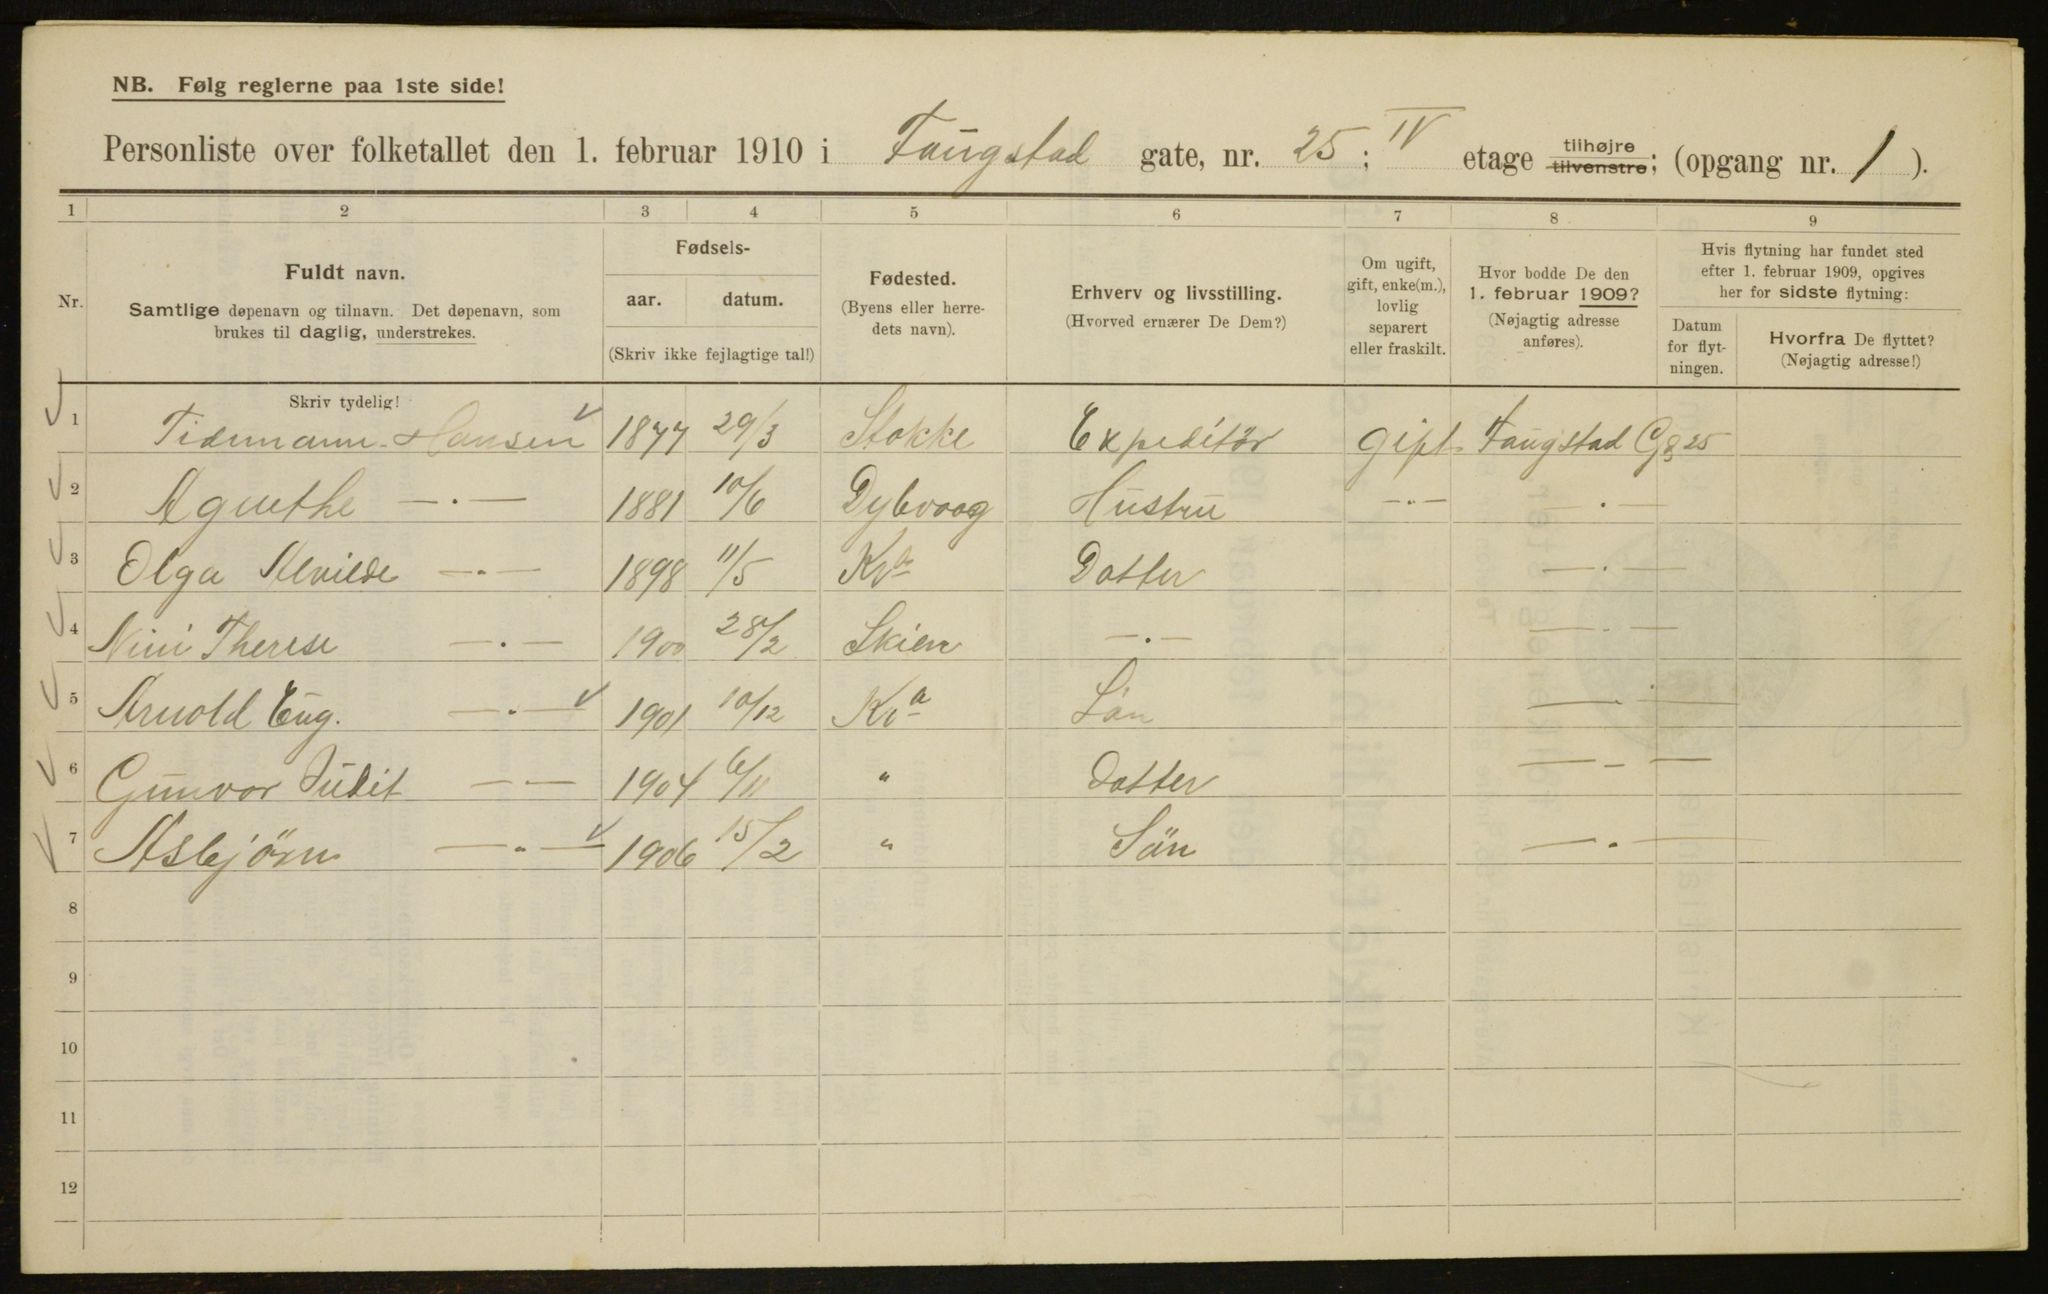 NB. Følg reglerne paa 1ste side!
Personliste over folketallet den 1. februar 1910 i Faugstad gate, nr. 25; IV etage tilhøjre tilvenstre; (opgang nr. 1).
1 2 3 4 5 6 7 8 9
Nr.
Fuldt navn.
Samtlige døpenavn og tilnavn. Det døpenavn, som
brukes til daglig, understrekes.
Skriv tydelig!
Fødsels-
aar. datum.
(Skriv ikke fejlagtige tal!)
Fødested.
(Byens eller herre-
dets navn).
Erhverv og livsstilling.
(Hvorved ernærer De Dem?)
Om ugift,
gift, enke(m.),
lovlig
separert
eller fraskilt.
Hvor bodde De den
1. februar 1909?
(Nøjagtig adresse
anføres).
Hvis flytning har fundet sted
efter 1. februar 1909, opgives
her for sidste flytning:
Datum
for flyt-
ningen.
Hvorfra De flyttet?
(Nøjagtig adresse!)
1 Tidemann Hansen 1877 29/3 Stokke Expeditör Gift Faugstad Gd 25
2 Agnethe —·— 1881 10/6 Dybvaag Hustru —·— —·—
3 Olga Alvilde —·— 1898 11/5 Kra Datter —·—
4 Nini Therese —·— 1900 28/2 Skien —·— —·—
5 Arnold Eug. —·— 1901 10/12 Kra Sön —·—
6 Gunvor Judit —·— 1904 6/11 " Datter —·—
7 Asbjörn —·— 1906 15/2 " Sön —·—
8
9
10
11
12